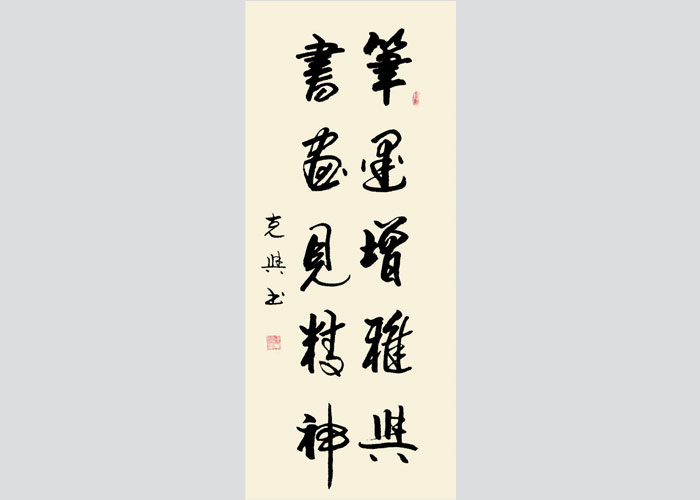 筆墨增雅興
書畫見精神
克興书